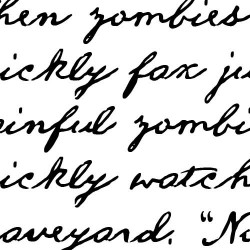 hen zombies
ickly fax ju
ainful zombi
ickly watch
aveyard. "Nu